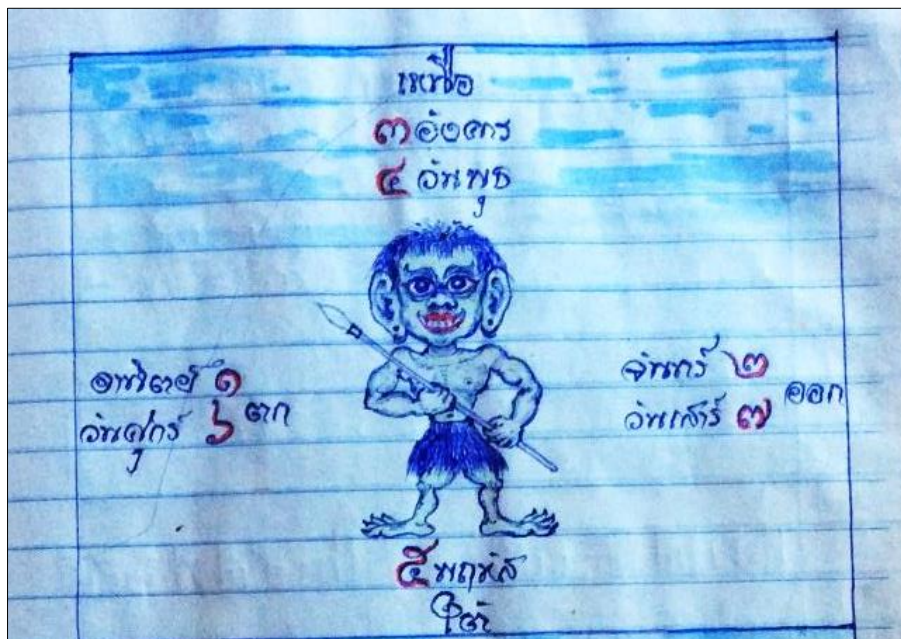 เหนือ
๓ อังคาร
๔ วันพุธ
อาทิตย์ ๑
วันศุกร์ ๖
ตก
จันทร์ ๒
วันเสาร์ ๗
ออก
๕ พฤหัส
ใต้